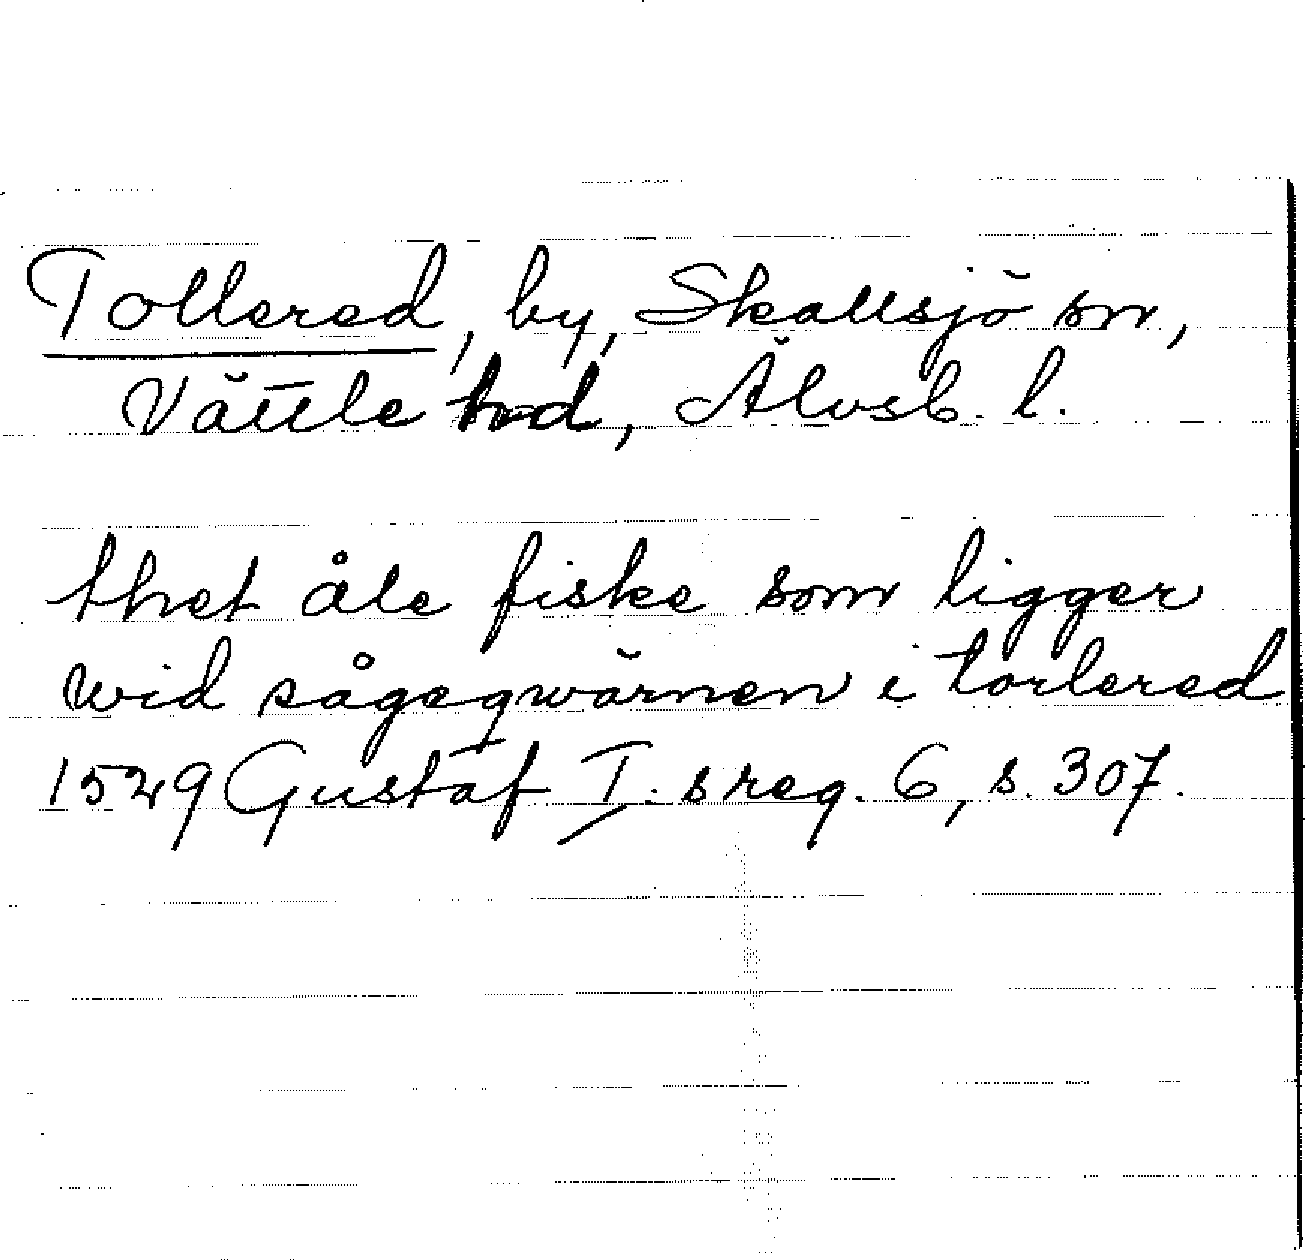 Tollered, by, Skallsjö sn,
Vättle hd, Älvsb. l.
thet åle fiske som ligger
wid sågeqwärnen i torlered
1529 Gustaf I:s reg. 6, s. 307.